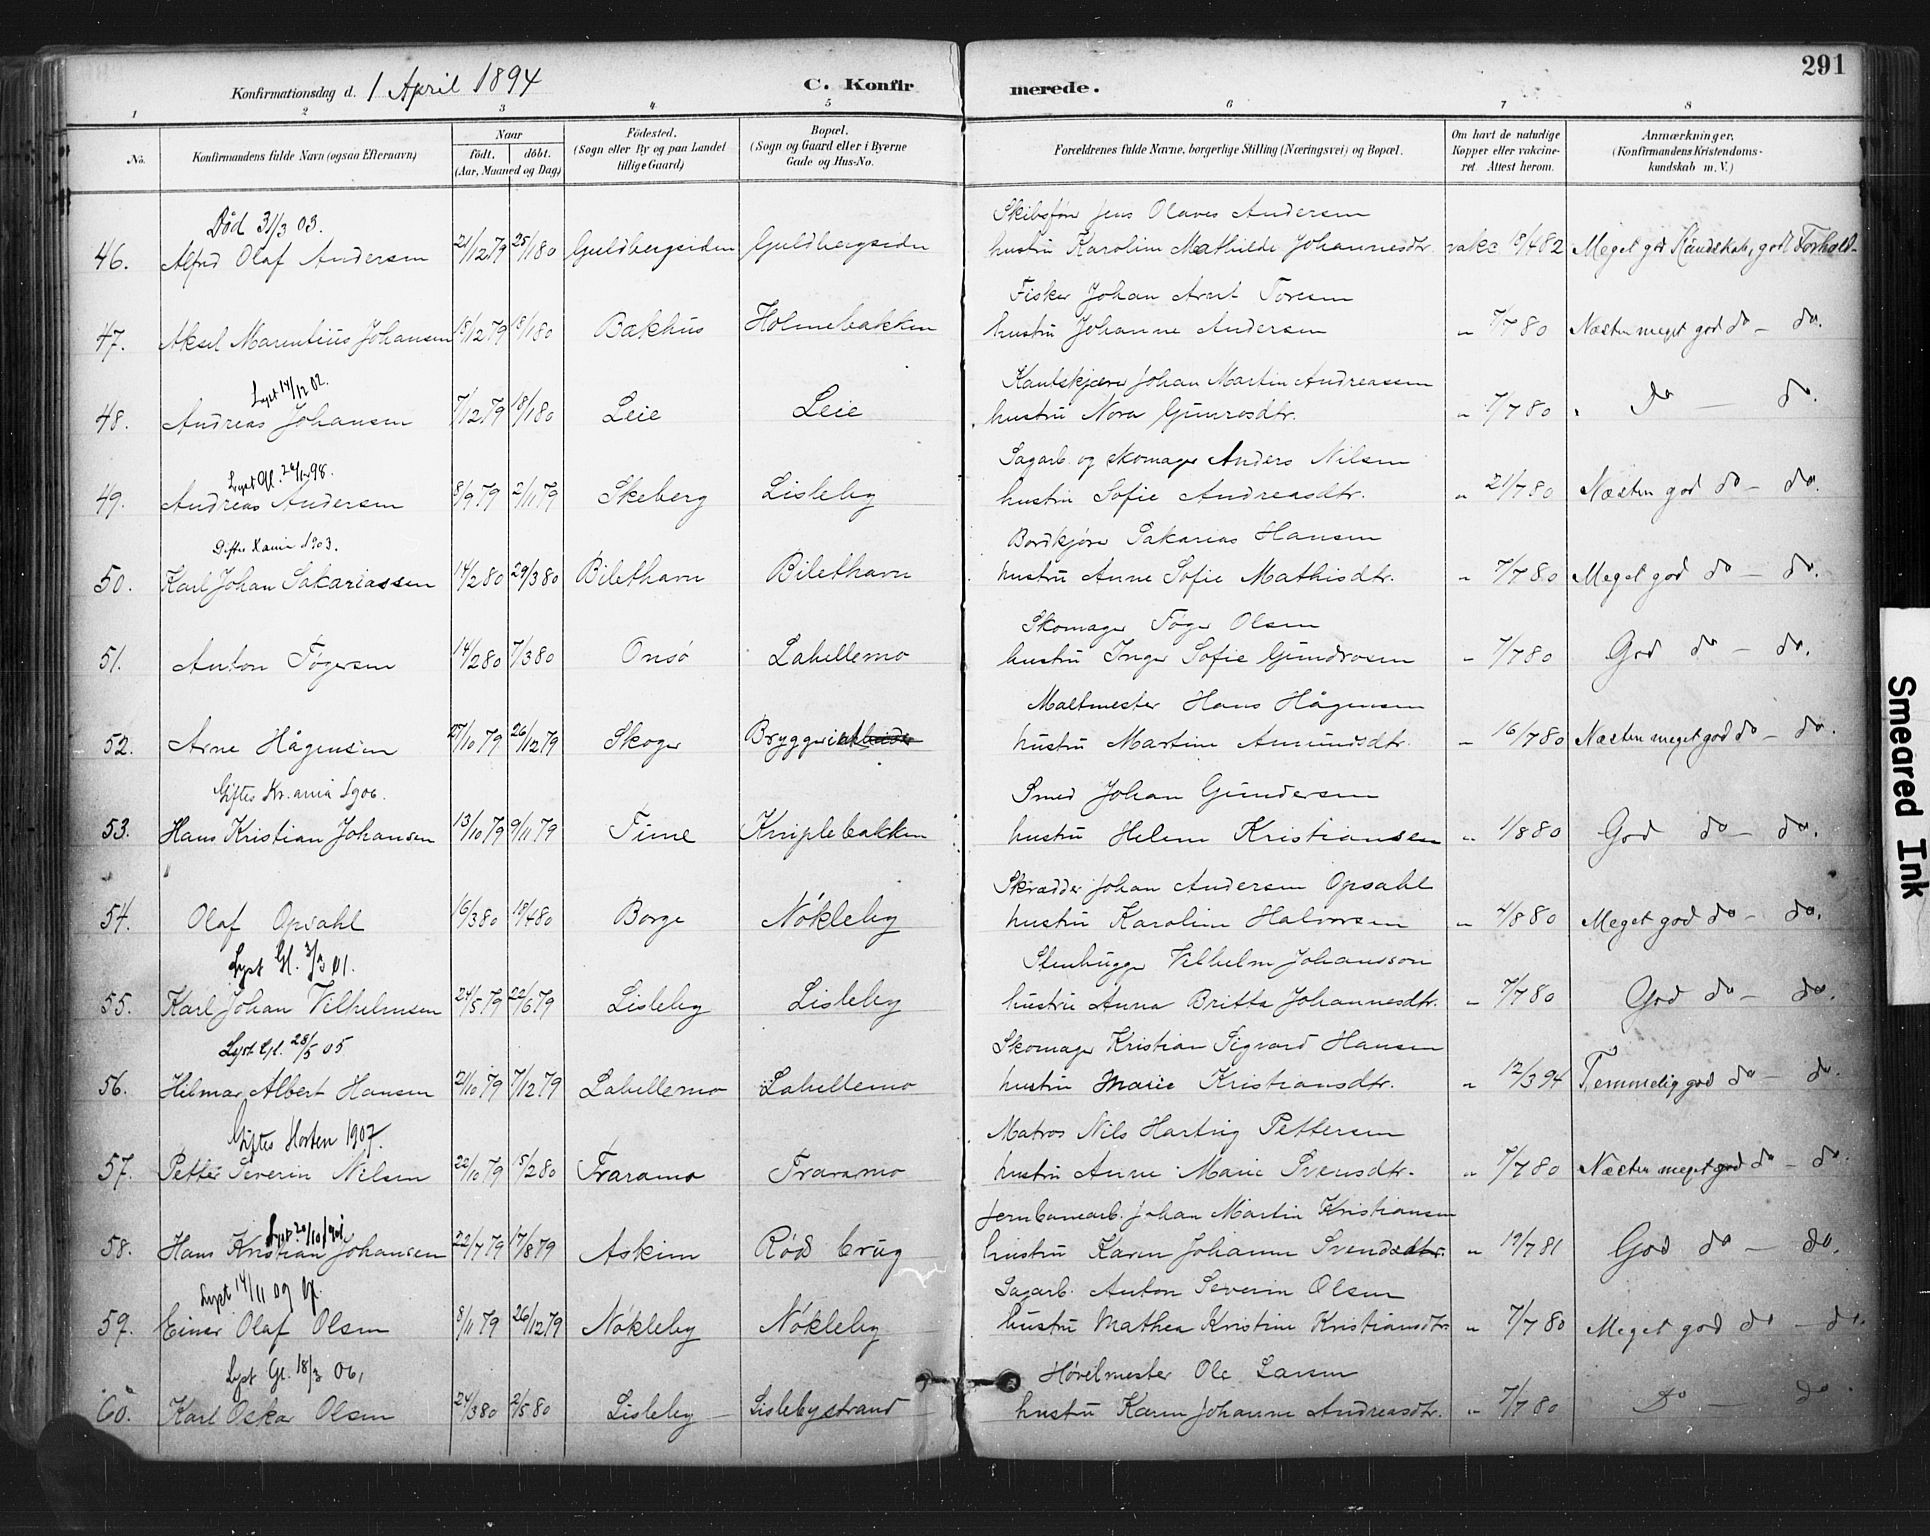 291
Konfirmationsdag d. 1 April 1894
C. Konfirmerede.
1 2 3 4 5 6 7 8
No. Konfirmandens fulde Navn (ogsaa Efternavn) Naar født, døbt. (Aar, Maaned og Dag) Fødested. (Sogn eller By og paa Landet tillige Gaard) Bopæl. (Sogn og Gaard eller i Byerne Gade og Hus-No. Forældrenes fulde Navne, borgerlige Stilling (Næringsvei) og Bopæl. Om havt de naturlige Kopper eller vakcineret. Attest herom. Anmærkninger. (Konfirmandens Kristendomskundskab m. V.)
Död 31/3 03. Skibsför Jens Olaves Andersen
46. Alfred Olaf Andersen 21/12 79 25/1 80 Guldbergsiden Guldbergsiden hustru Karoline Mathilde Johannesdtr. vakc 18/4 82 Meget god Kundskab, godt Forhold
Fisker Johan Arnt Toresen
47. Aksel Marentius Johansen 15/12 79 18/1 80 Bakhus Holmebakken hustru Johanne Andersen " 7/7 80 Næsten meget god do - do.
Lyst 14/12 02. Johan Martin Andreassen
48. Andreas Johansen 7/12 79 18/1 80 Leie Leie hustru Nora Gunrosdtr. " 7/7 80 " do - do.
Lyst Gl. 98. Sagarb. og skomager Anders Nilsen
49. Andreas Andersen 8/9 79 2/11 79 Skeberg Lisleby hustru Sofie Andreasdtr. " 21/7 80 Næsten god do - do.
Giftes 1903. Bordkjører Sakarias Hansen
50. Karl Johan Sakariassen 14/2 80 29/3 80 Bilethavn Bilethavn hustru Anne Sofie Mathisdtr. " 7/7 80 Meget god do - do.
Skomager Töger Olsen
51. Anton Tøgersen 14/2 80 7/3 80 Onsö Lahellemo hustru Inger Sofie Gundrosen " 7/7 80 God do - do.
Maltmester Hans Hågensen
52. Arne Hågensen 27/10 79 26/12 79 Skoger Bryggeri hustru Martine Amundsdtr. " 16/7 80 Næsten meget god do - do.
Giftes Kr.ania 1906. Smed Johan Gundersen
53. Hans Kristian Johansen 13/10 79 9/11 79 Tune Kniplebakken hustru Helene Kristiansen " 1/8 80 God do - do.
Skrædder Johan Andersen Opsahl
54. Olaf Opsahl 16/3 80 18/4 80 Borge Nökleby hustru Karoline Halvorsen " 4/8 80 Meget god do - do.
Lyst Gl. 3/3 01. Stenhugger Vilhelm Johansson
55. Karl Johan Vilhelmsen 24/5 79 22/6 79 Lisleby Lisleby hustru Anna Britta Johannesdtr. " 7/7 80 God do - do.
Lyst Gl. 28/5 05 Skomager Kristian Sigvard Hansen
56. Hilmar Albert Hansen 2/10 79 7/12 79 Lahellemo Lahellemo hustru Marie Kristiansdtr. " 12/3 94 Temmelig god do - do.
Giftes Horten 1907. Matros Nils Hartvig Pettersen
57. Petter Severin Nilsen 22/10 79 15/2 80 Traramo Traramo hustru Anne Marie Svensdtr. " 7/7 80 Næsten meget god do - do.
Jernbanearb. Johan Martin Kristiansen
58. Hans Kristian Johansen 22/7 79 17/8 79 Askim Röds brug hustru Karen Johanne Svendsdtr. " 19/7 81 God do - do.
Lyst 14/11 09 Sagarb. Anton Severin Olsen
59. Einar Olaf Olsen 8/11 79 26/12 79 Nökleby Nökleby hustru Mathea Kristine Kristiansdtr. " 7/7 80 Meget god do - do.
Lyst Gl. 18/3 06, Hövelmester Ole Larsen
60. Karl Oskar Olsen 24/3 80 2/5 80 Lisleby Lislebystrand hustru Karen Johanne Andreasdtr. " 7/7 80 Do - do
Smeared Ink